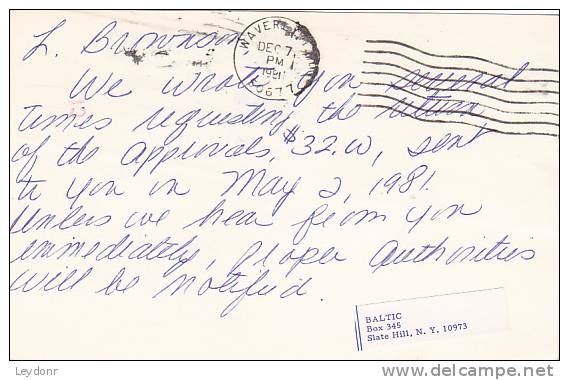 L. Brownson
WAVERL
DEC 7,
PM
1981
50677
We wrote you several
times requesting the return
of the Approvals, $32.00, sent
to you on May 2, 1981.
Unless we hear from you
immediately, proper authorities
will be notified.
BALTIC
Box 345
Slate Hill, N. Y. 10973
Leydonr
delcampe.net